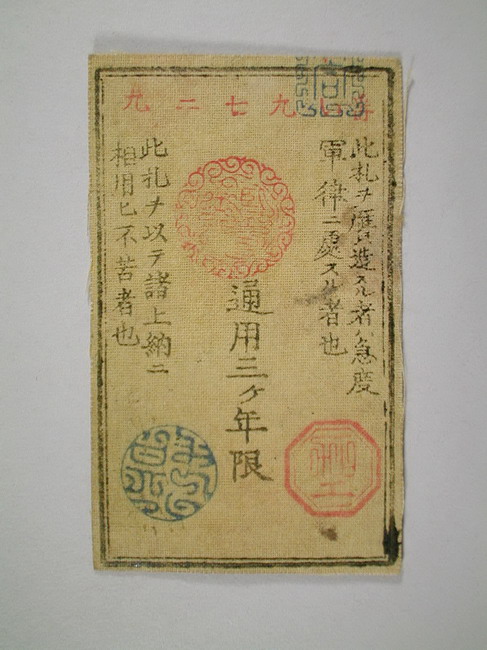 九七二九
此札ヲ贋造スル者ハ急度
軍律ニ處スル者也
通用三ヶ年限
此札ヲ以テ諸上納ニ
相用ヒ不苦者也